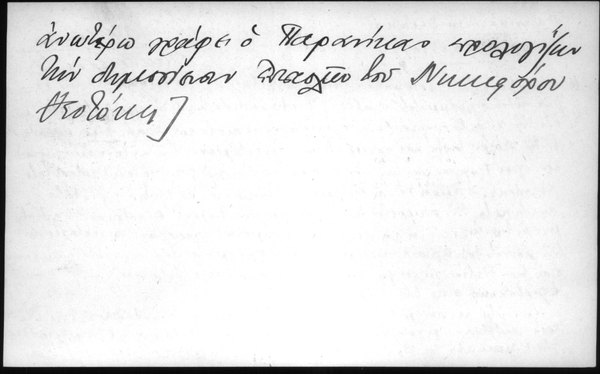 ἀνωτέρω γράφει ὁ Παρανίκας προλογίζων
τὴν δημοσίευσιν ἐπιστολῶν τοῦ Νικηφόρου
Θεοτόκη]